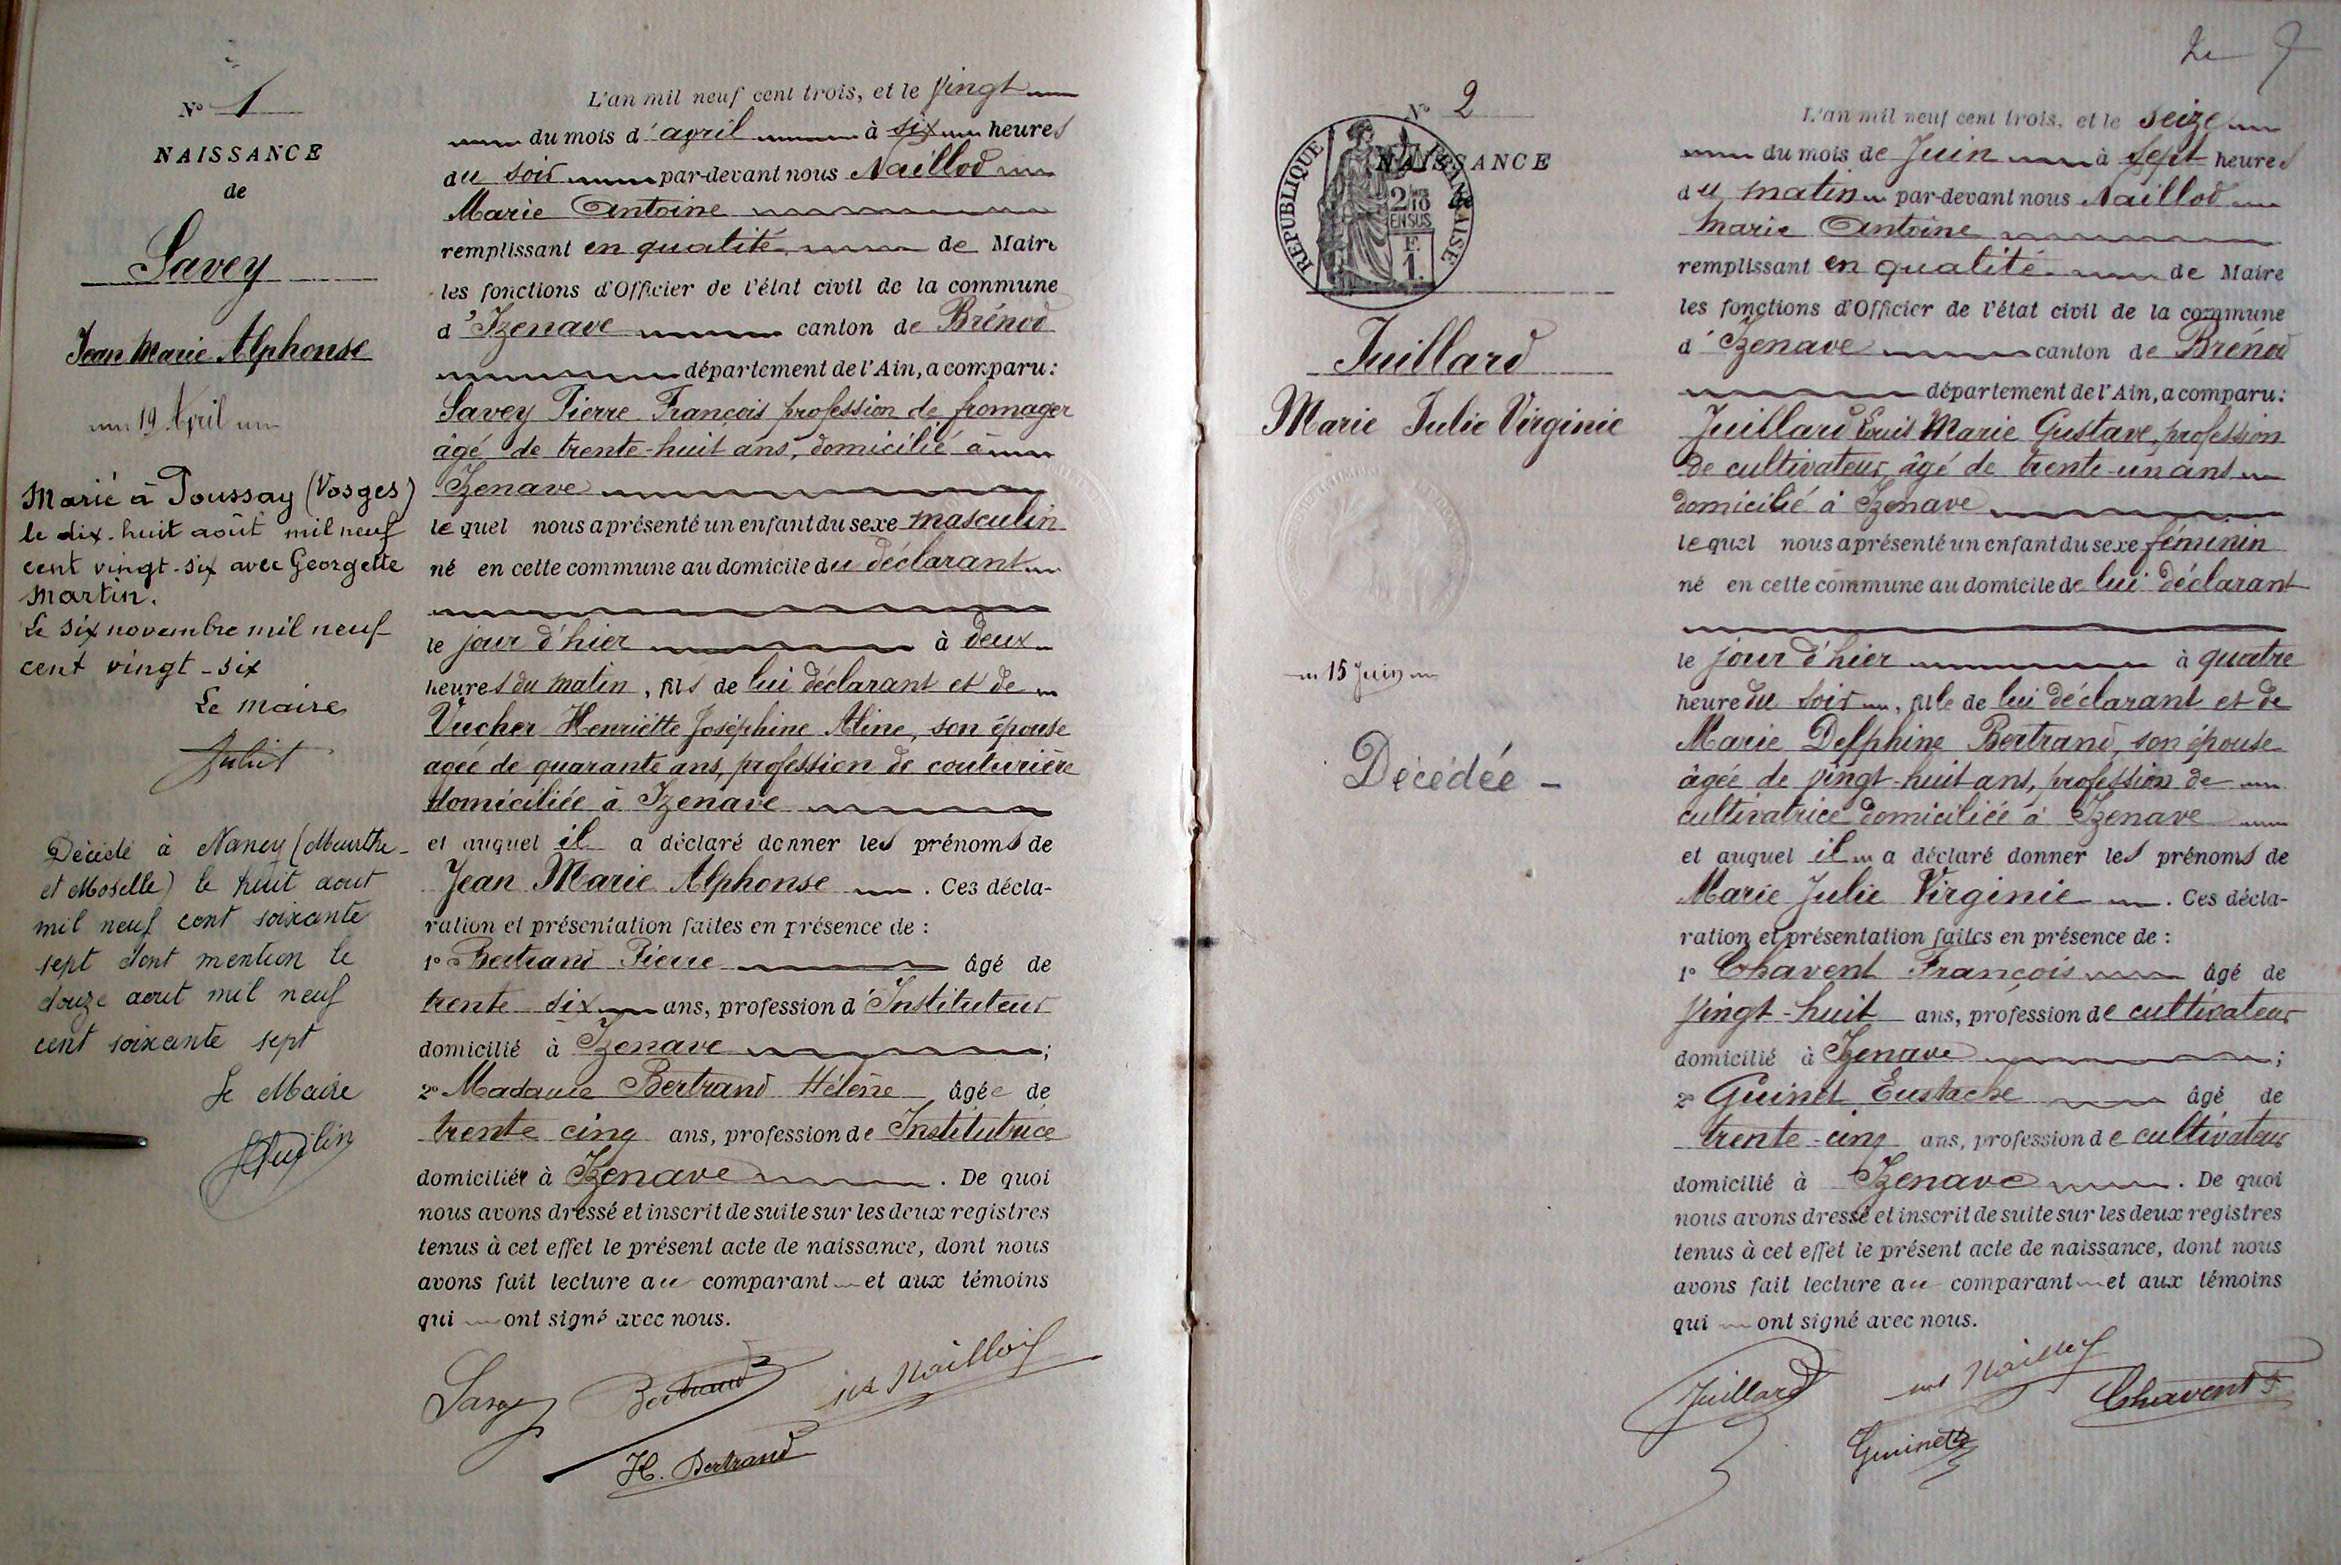 N° 1
NAISSANCE
de
Savey
Jean Marie Alphonse
19 Avril
Marié à Poussay (Vosges)
le dix-huit août mil neuf
cent vingt-six avec Georgette
Martin.
Le six novembre mil neuf
cent vingt-six
Le maire
Décédé à Nancy (Meurthe-
et Moselle) le huit aout
mil neuf cent soixante
sept dont mention le
douze aout mil neuf
cent soixante sept
Le Maire
L'an mil neuf cent trois, et le vingt
du mois d'avril à six heures
du soir par-devant nous Naillod
Marie Antoine
remplissant en qualité de Maire
les fonctions d'Officier de l'état civil de la commune
d'Izenave canton de Brénod
département de l'Ain, a comparu :
Savey Pierre François profession de fromager
âgé de trente-huit ans, domicilié à
Izenave
lequel nous a présenté un enfant du sexe masculin
né en cette commune au domicile du déclarant
le jour d'hier à deux
heures du matin, fils de lui déclarant et de
Vucher Henriette Joséphine Aline, son épouse
agée de quarante ans, profession de couturière
domiciliée à Izenave
et auquel il a déclaré donner les prénoms de
Jean Marie Alphonse . Ces décla-
ration et présentation faites en présence de :
1° Bertrand Pierre âgé de
trente six ans, profession d'Instituteur
domicilié à Izenave ;
2° Madame Bertrand Hélène âgée de
trente cinq ans, profession de Institutrice
domiciliée à Izenave . De quoi
nous avons dressé et inscrit de suite sur les deux registres
tenus à cet effet le présent acte de naissance, dont nous
avons fait lecture au comparant et aux témoins
qui ont signé avec nous.
Savey Bertrand Naillod
H. Bertrand
N° 2
RÉPUBLIQUE FRANÇAISE
2/10
EN SUS
F.
1.
NAISSANCE
Juillard
Marie Julie Virginie
15 Juin
Décédée -
L'an mil neuf cent trois, et le seize
du mois de Juin à sept heures
du matin par-devant nous Naillod
Marie Antoine
remplissant en qualité de Maire
les fonctions d'Officier de l'état civil de la commune
d'Izenave canton de Brénod
département de l'Ain, a comparu :
Juillard Louis Marie Gustave, profession
de cultivateur âgé de trente-un ans
domicilié à Izenave
lequel nous a présenté un enfant du sexe féminin
né en cette commune au domicile de lui déclarant
le jour d'hier à quatre
heure du soir, fille de lui déclarant et de
Marie Delphine Bertrand, son épouse
âgée de vingt-huit ans, profession de
cultivatrice domiciliée à Izenave
et auquel il a déclaré donner les prénoms de
Marie Julie Virginie . Ces décla-
ration et présentation faites en présence de :
1° Chavent François âgé de
vingt-huit ans, profession de cultivateur
domicilié à Izenave ;
2° Guinet Eustache âgé de
trente-cinq ans, profession de cultivateur
domicilié à Izenave . De quoi
nous avons dressé et inscrit de suite sur les deux registres
tenus à cet effet le présent acte de naissance, dont nous
avons fait lecture au comparant et aux témoins
qui ont signé avec nous.
Juillard Naillod Chavent F
Guinet